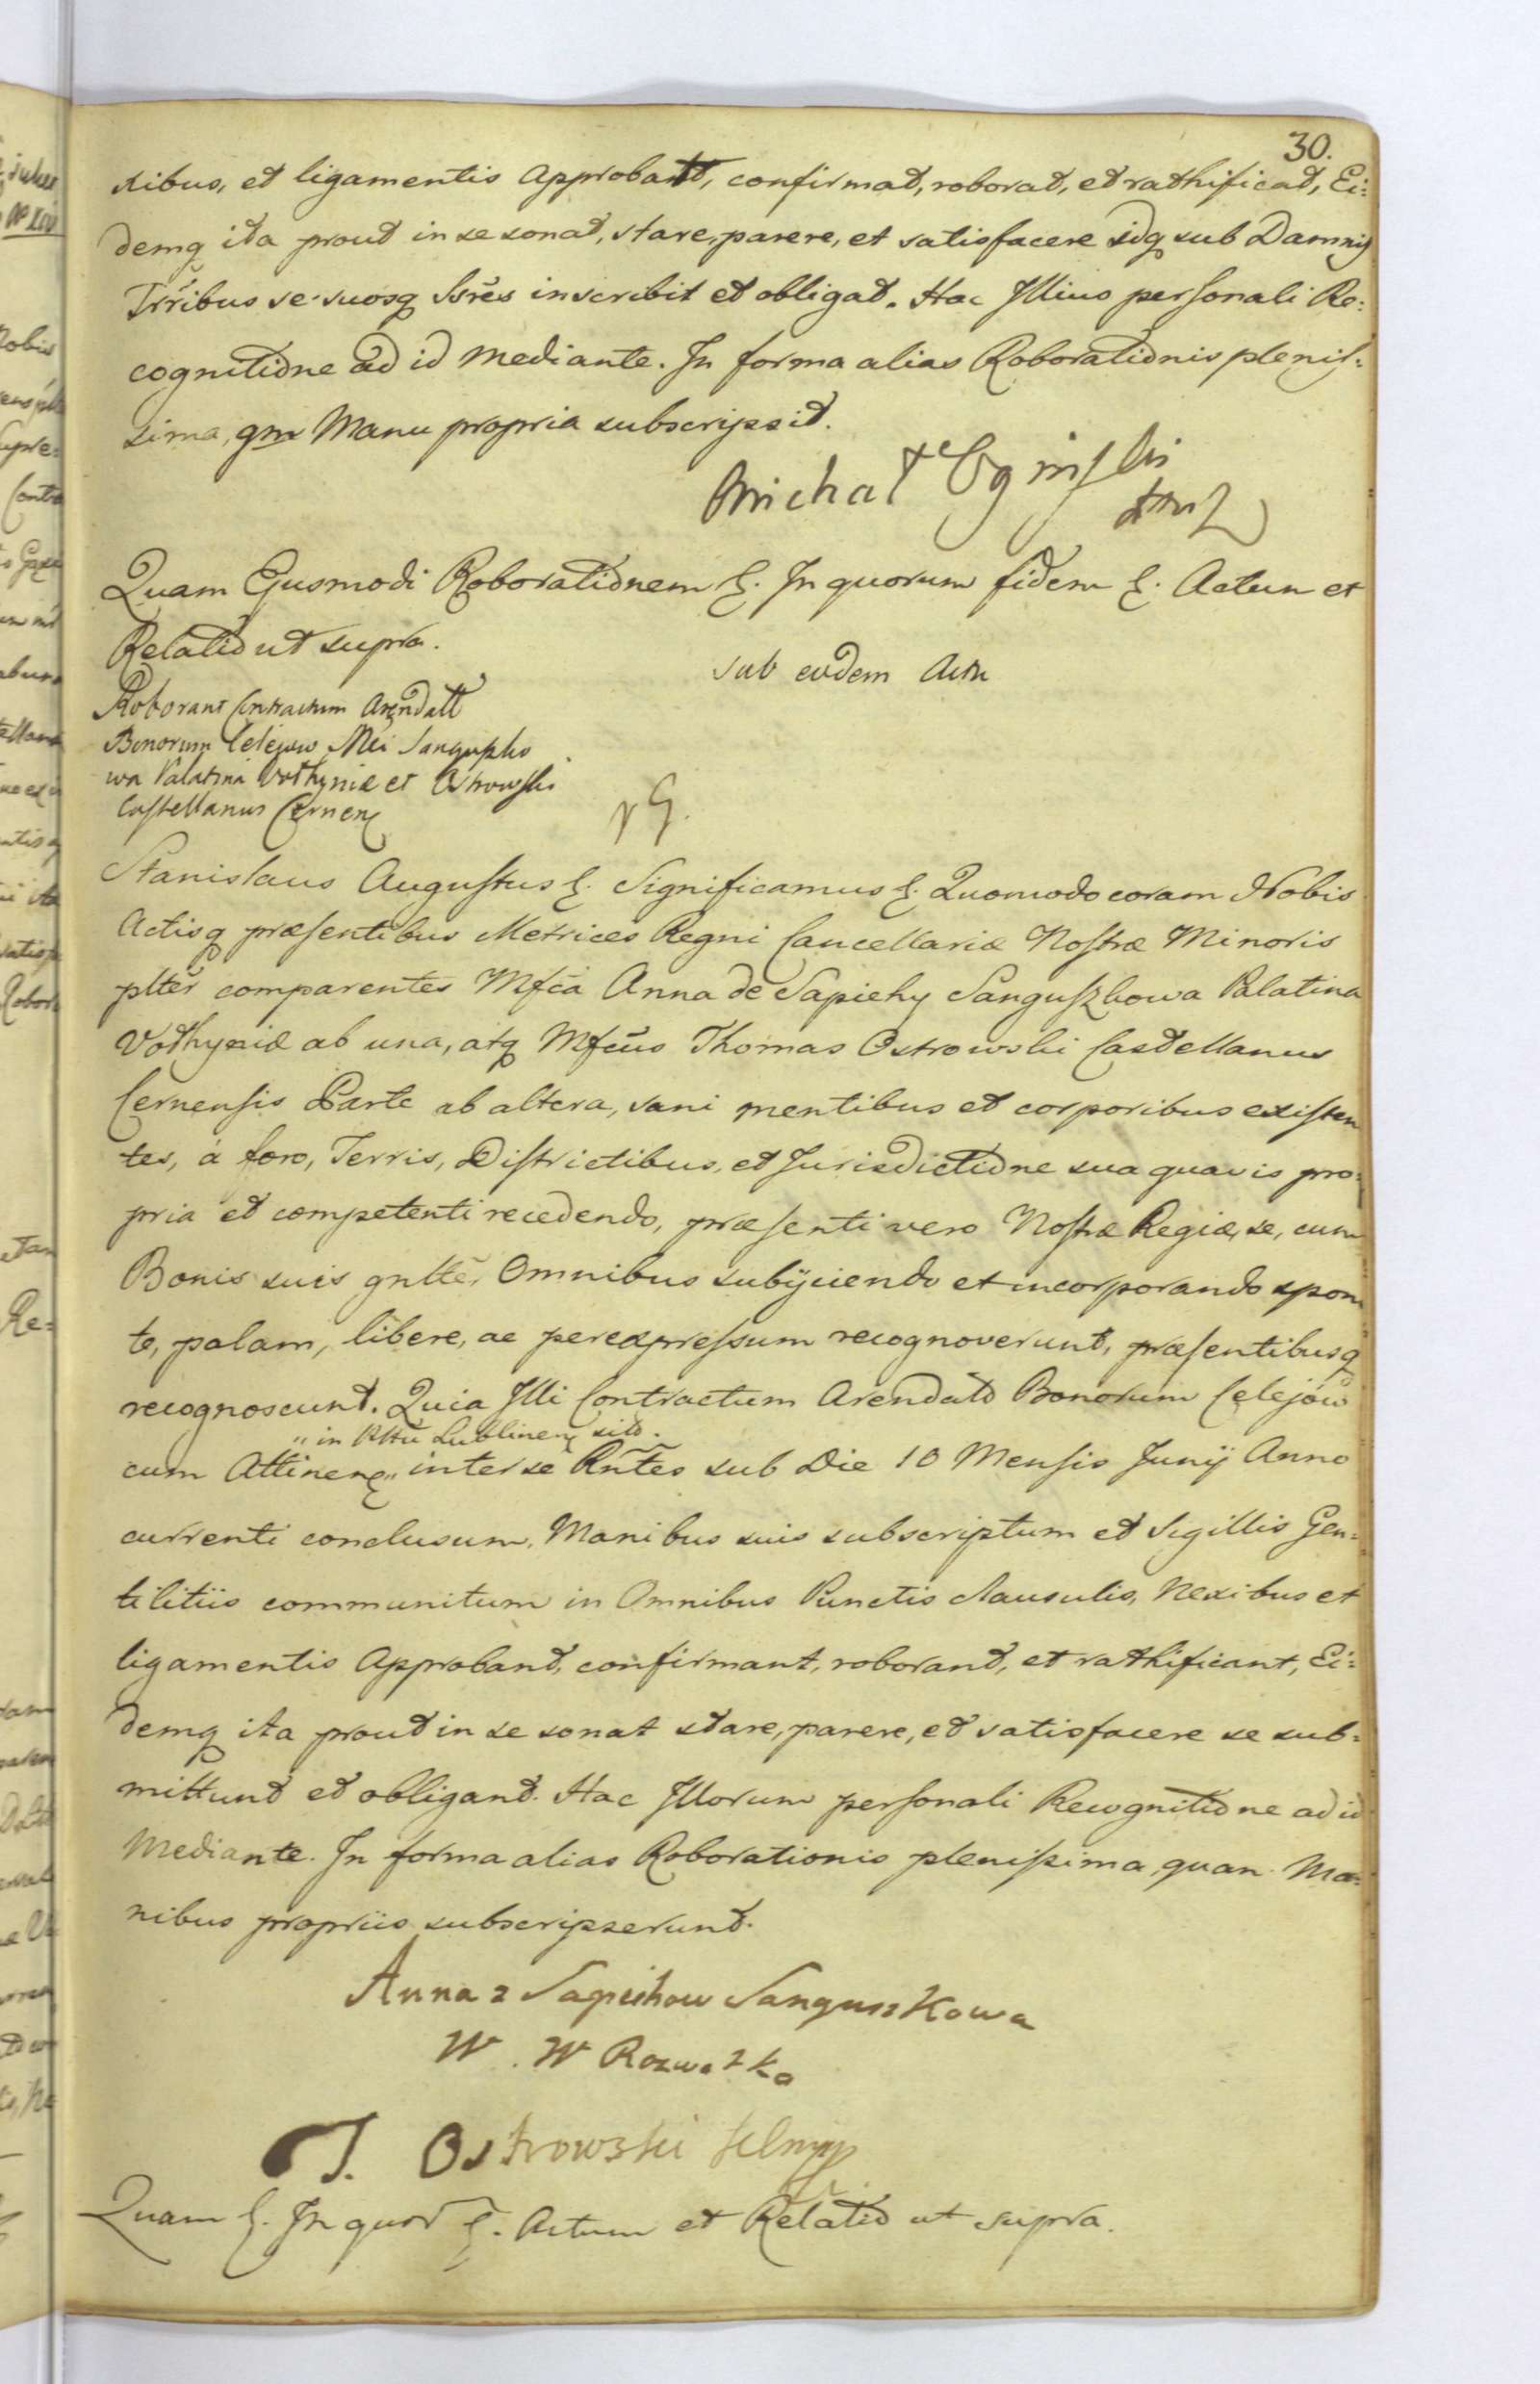 30.
xibus, et ligamentis Approbat, confirmat, roborat, et rathificat, Ei:
demq ita prout in se sonat, stare, parere, et satisfacere idq sub Damnis
Trribus se suosq Ssrēs inscribit et obligat. Hac Illius personali Re:
cognitione ad id mediante. In forma alias Roborationis plenis:
sima, qm Manu propria subscripsit.
Michał Ogiński
Quam Ejusmodi Roborationem &. In quorum fidem &. Actum et
Relatio ut supra.
sub eodem Actu
Roborant Contractum Arendatt
Bonorum Celejow Mei Sanguszko
wa Palatina Volhyniæ et Ostrowski
Castellanus Cernen
Stanislaus Augustus &. Significamus &. Quomodo coram Nobis
Actisq præsentibus Metrices Regni Cancellariæ Nostræ Minoris
pltēr comparentes Mfca Anna de Sapiehy Sanguszkowa Palatina
Volhyniæ ab una, atq Mfcus Thomas Ostrowski Castellanus
Cernensis Parte ab altera, sani mentibus et corporibus existen
tes, à foro, Terris, Districtibus, et Jurisdictione sua quavis pro:
pria et competenti recedendo, præsenti vero Nostræ Regiæ, se, cum
Bonis suis gnltē, Omnibus subijciendo et incorporando spon
te, palam, libere, ac per expressum recognoverunt, præsentibusq
recognoscunt. Quia Illi Contractum Arendato Bonorum Celejów
" in Pttū Lublinen sito.
cum Attinen " inter se Rntes sub Die 10 Mensis Junij Anno
currenti conclusum, Manibus suis subscriptum et Sigillis Gen=
tilitiis communitum in Omnibus Punctis clausulis, Nexibus et
ligamentis Approbant, confirmant, roborant, et rathificant, Ei=
demq ita prout in se sonat stare, parere, et satisfacere se sub=
mittunt et obligant. Hac Illorum personali Recognitione ad id
Mediante. In forma alias Roborationis plenissima, quan Ma=
nibus propriis subscripserunt.
Anna z Sapiehow Sanguszkowa
W. W
T. Ostrowski
Quam &. In quor &. Actum et Relatio ut supra.